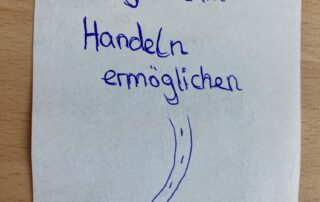 Handeln
ermöglichen